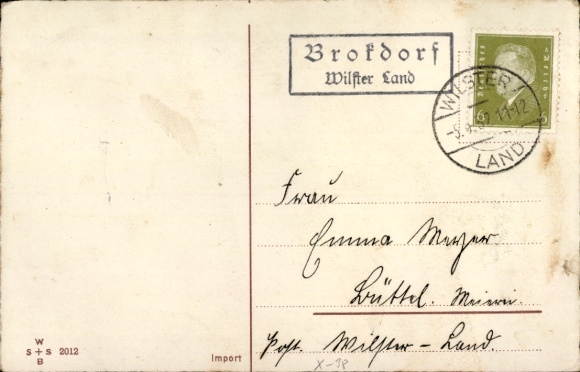 Brokdorf
Wilster Land
Deutsches Reich
6
WILSTER
11-12
LAND
Frau
Emma Meyer
Büttel. Meierei.
Post. Wilster-Land.
W
S + S 2012
B
Import